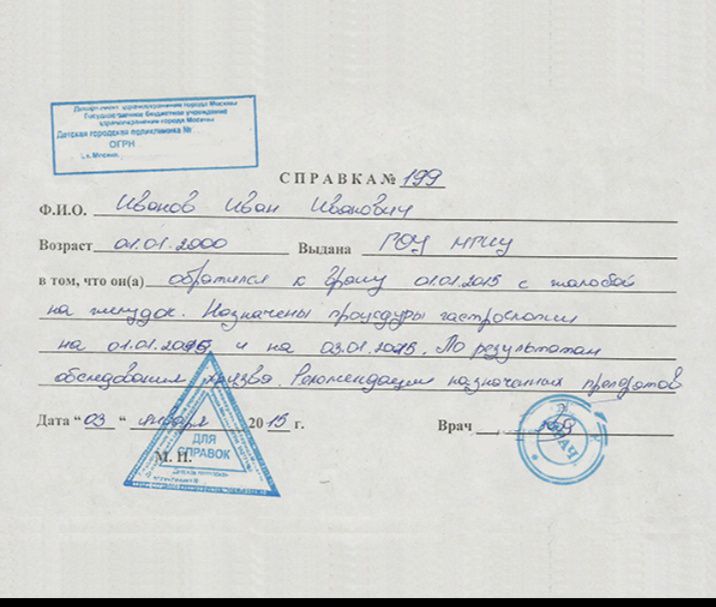 Департамент здравоохранения города Москвы
Государственное бюджетное учреждение
здравоохранения города Москвы
Детская городская поликлиника №
ОГРН
г. Москва
СПРАВКА № 199
Ф.И.О. Иванов Иван Иванович
Возраст 01.01.2000 Выдана ГОУ МГИУ
в том, что он(а) обратился к врачу 01.01.2015 с жалобой
на желудок. Назначены процедуры гастроскопии
на 01.01.2015 и на 03.01.2015. По результатам
обследования язва. Рекомендации назначенных препаратов
Дата “ 03 “ января 20 15 г. Врач
ДЛЯ
СПРАВОК
М. П.
ВРАЧ